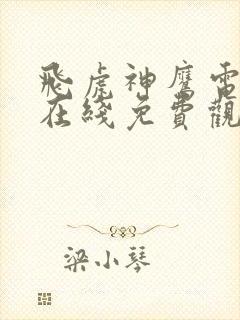 飛虎神鷹電
在綫免費觀
梁小琴